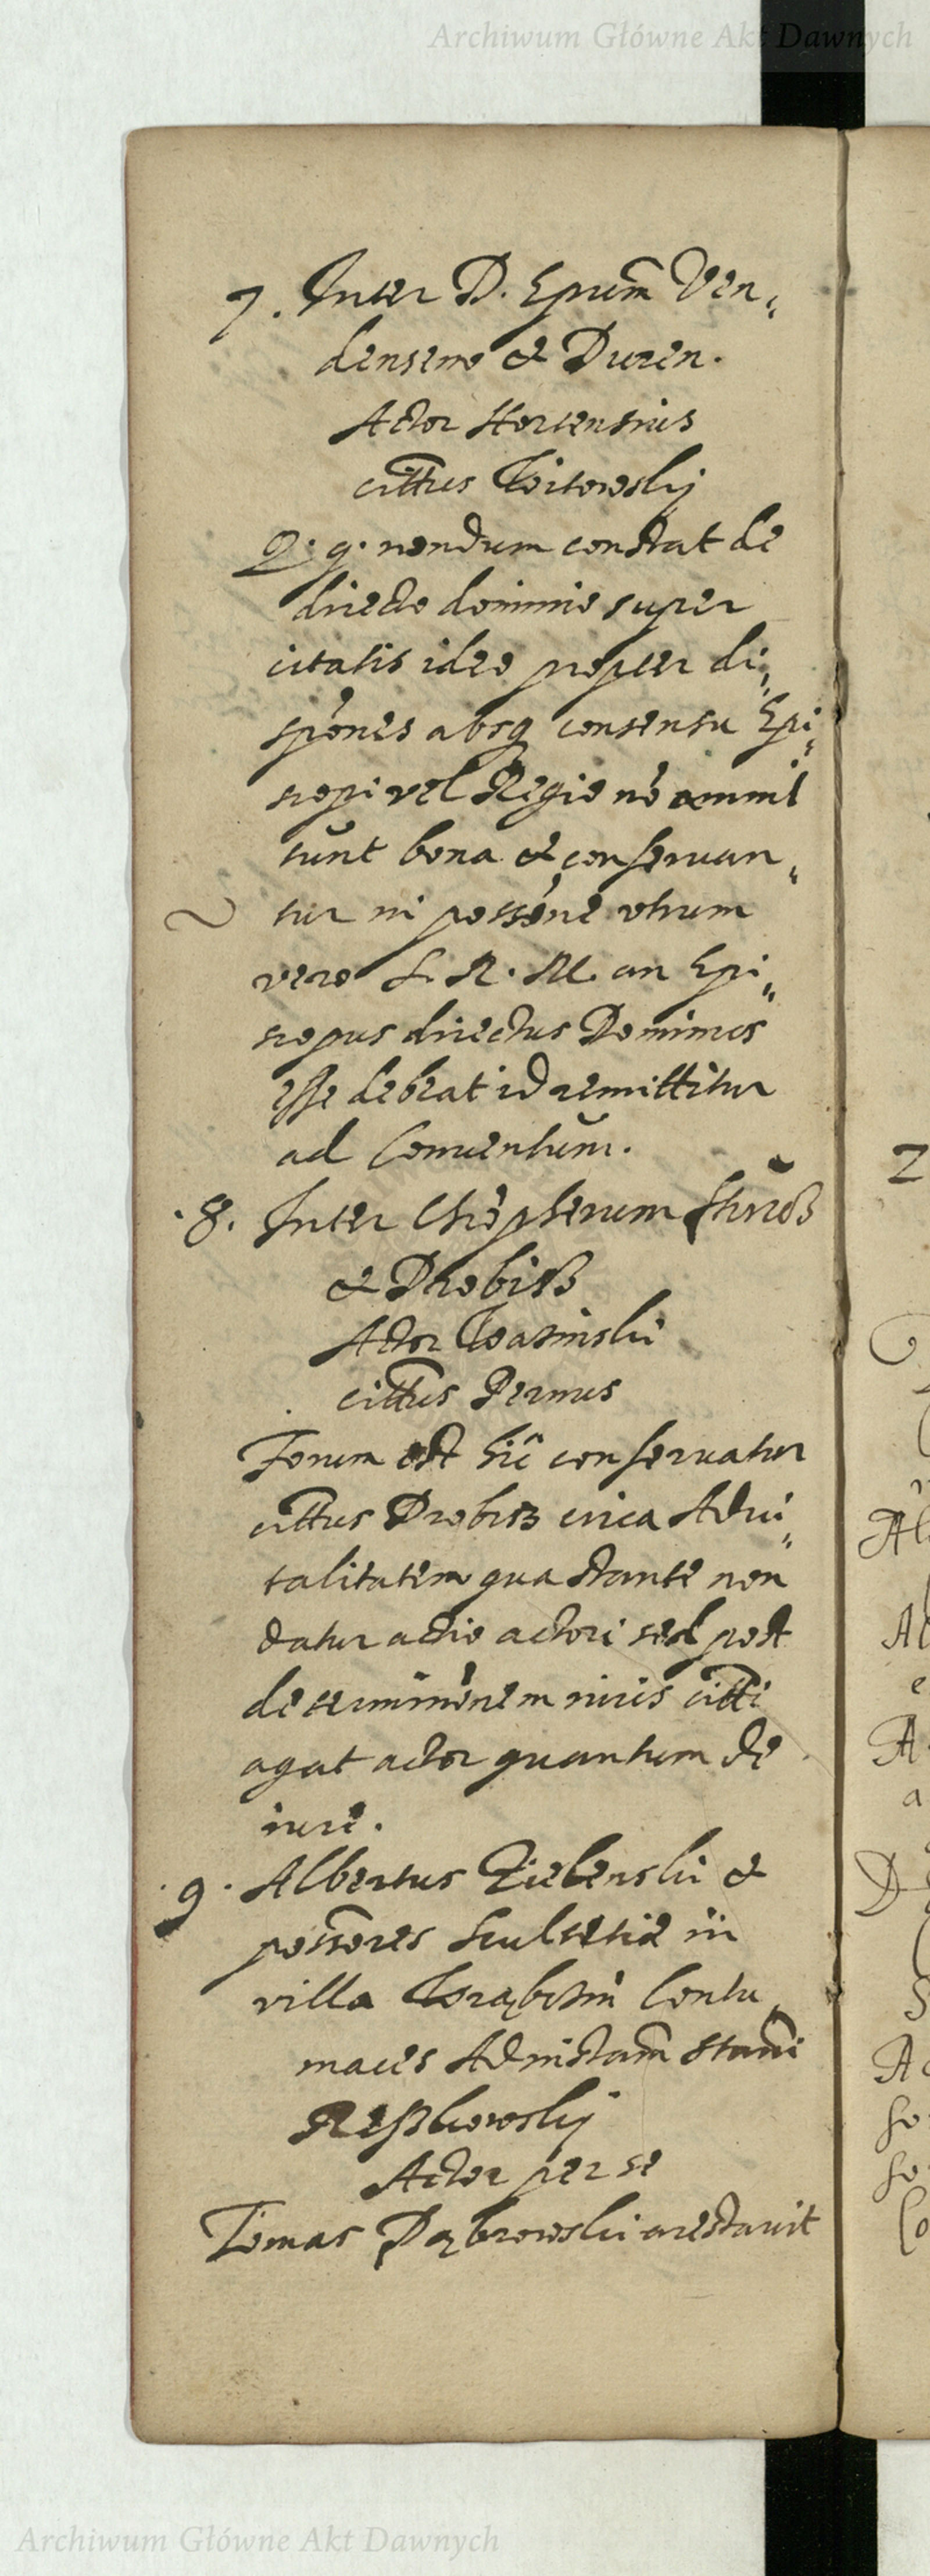 Archiwum Główne Akt Dawnych
7. Inter D. Epum̃ Ven„
densem et Duren.
Actor Hortensius
cittus Woitowskÿ
Q. q. nondum constat de
directo dominio super
citatis ideo propter di„
spönes absq consensu Epi„
scopi vel Regio nö ammit
tunt bona et conservan„
tur in possöne utrum
vero S. R. M. an Epi„
scopus directus Dominus
esse debeat id remittitur
ad Conventum.
8. Inter Chröpherum
et Drobisß
Actor Wasinski
cittus Permus
Forum est hic conservatur
cittus Drobisß circa Advi„
talitatem qua stante non
datur actio actori sed post
determinönem iuris citti
agat actor quantum de
iure.
9. Albertus Zielenski et
possöres Scultetiæ in
villa Contu„
maces Ad instam̃ Stani
Actor per se
Tomas Dąbrowski arestavit
Archiwum Główne Akt Dawnych